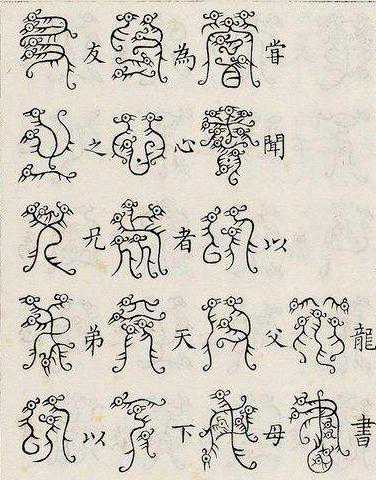 龍書
甞聞以父母
為心者天下
友之兄弟以